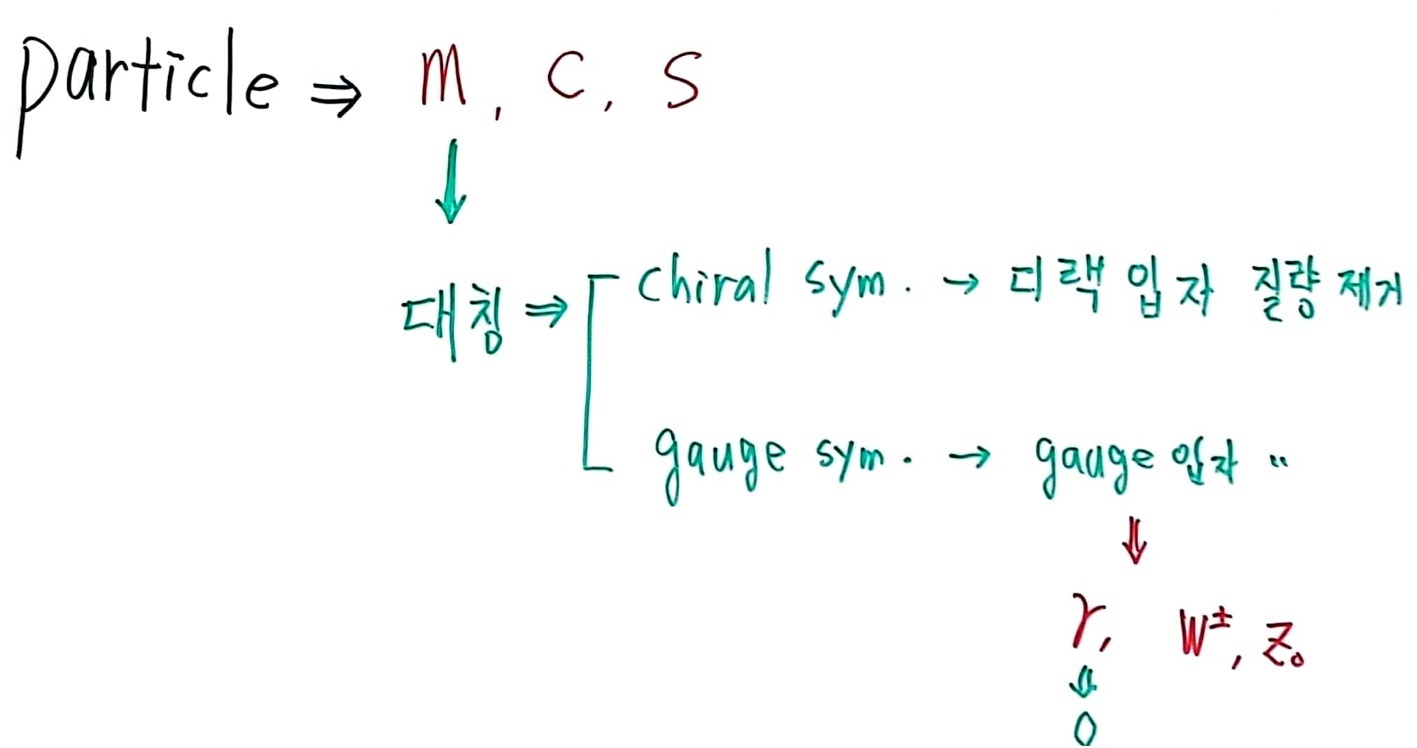 particle ⇒ m, c, s
↓
대칭 ⇒ [ chiral sym. → 디랙 입자 질량 제거
gauge sym. → gauge 입자 〃
⇓
γ, W±, Z₀
⇓
0